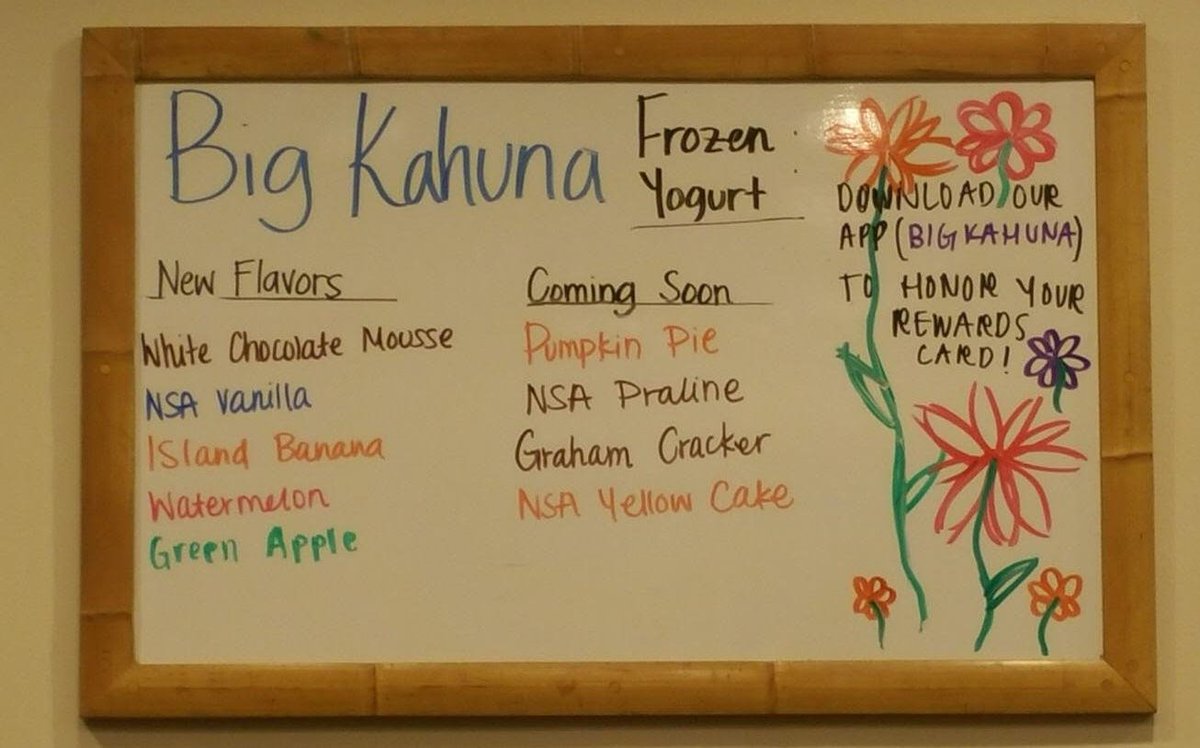 Big Kahuna
Frozen
Yogurt
New Flavors
White Chocolate Mousse
NSA Vanilla
Island Banana
Watermelon
Green Apple
Coming Soon
Pumpkin Pie
NSA Praline
Graham Cracker
NSA Yellow Cake
DOWNLOAD OUR
APP (BIG KAHUNA)
TO HONOR YOUR
REWARDS
CARD!